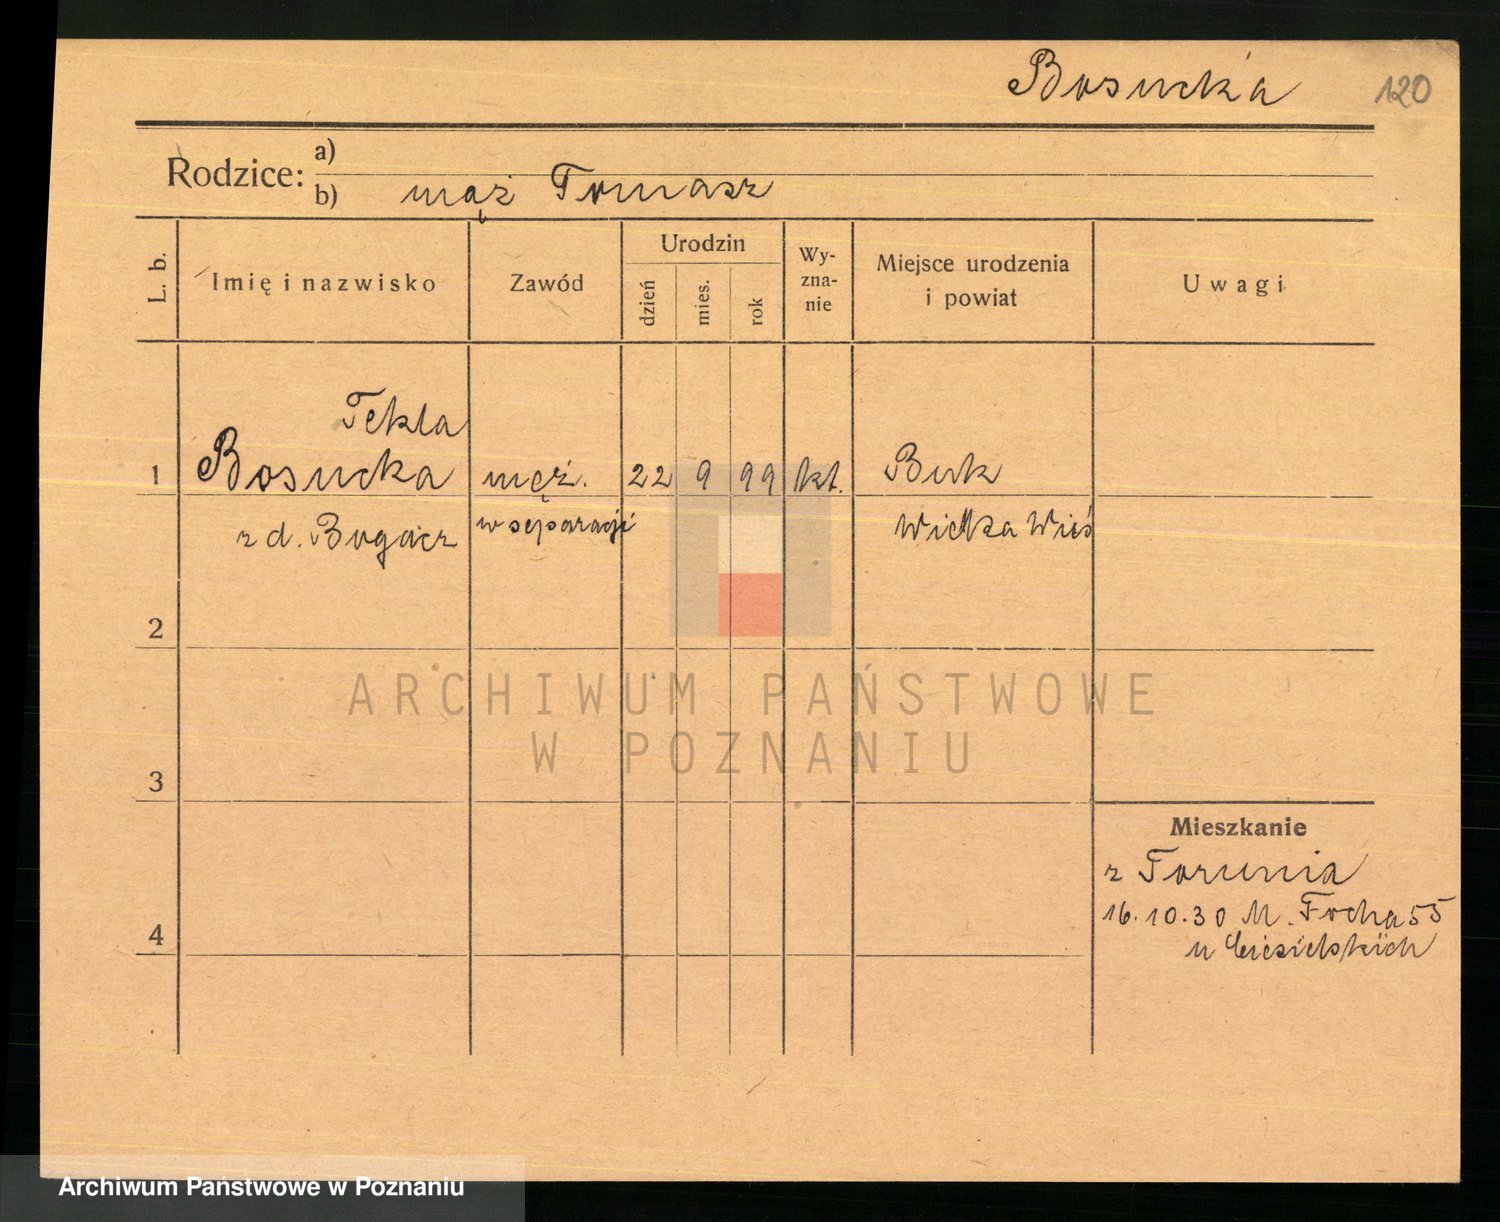 Bosucka 120
Rodzice: a)
b) mąż Tomasz
L. b.
Imię i nazwisko
Zawód
Urodzin
dzień
mies.
rok
Wy-
zna-
nie
Miejsce urodzenia
i powiat
Uwagi
Tekla
1 Bosucka męż. 22 9 99 kt. Buk
z d. Bogacz w separacji Wielka Wieś
2
3
4
Mieszkanie
z Torunia
16.10.30 M. Focha 55
u Ciesielskich
ARCHIWUM PAŃSTWOWE
W POZNANIU
Archiwum Państwowe w Poznaniu